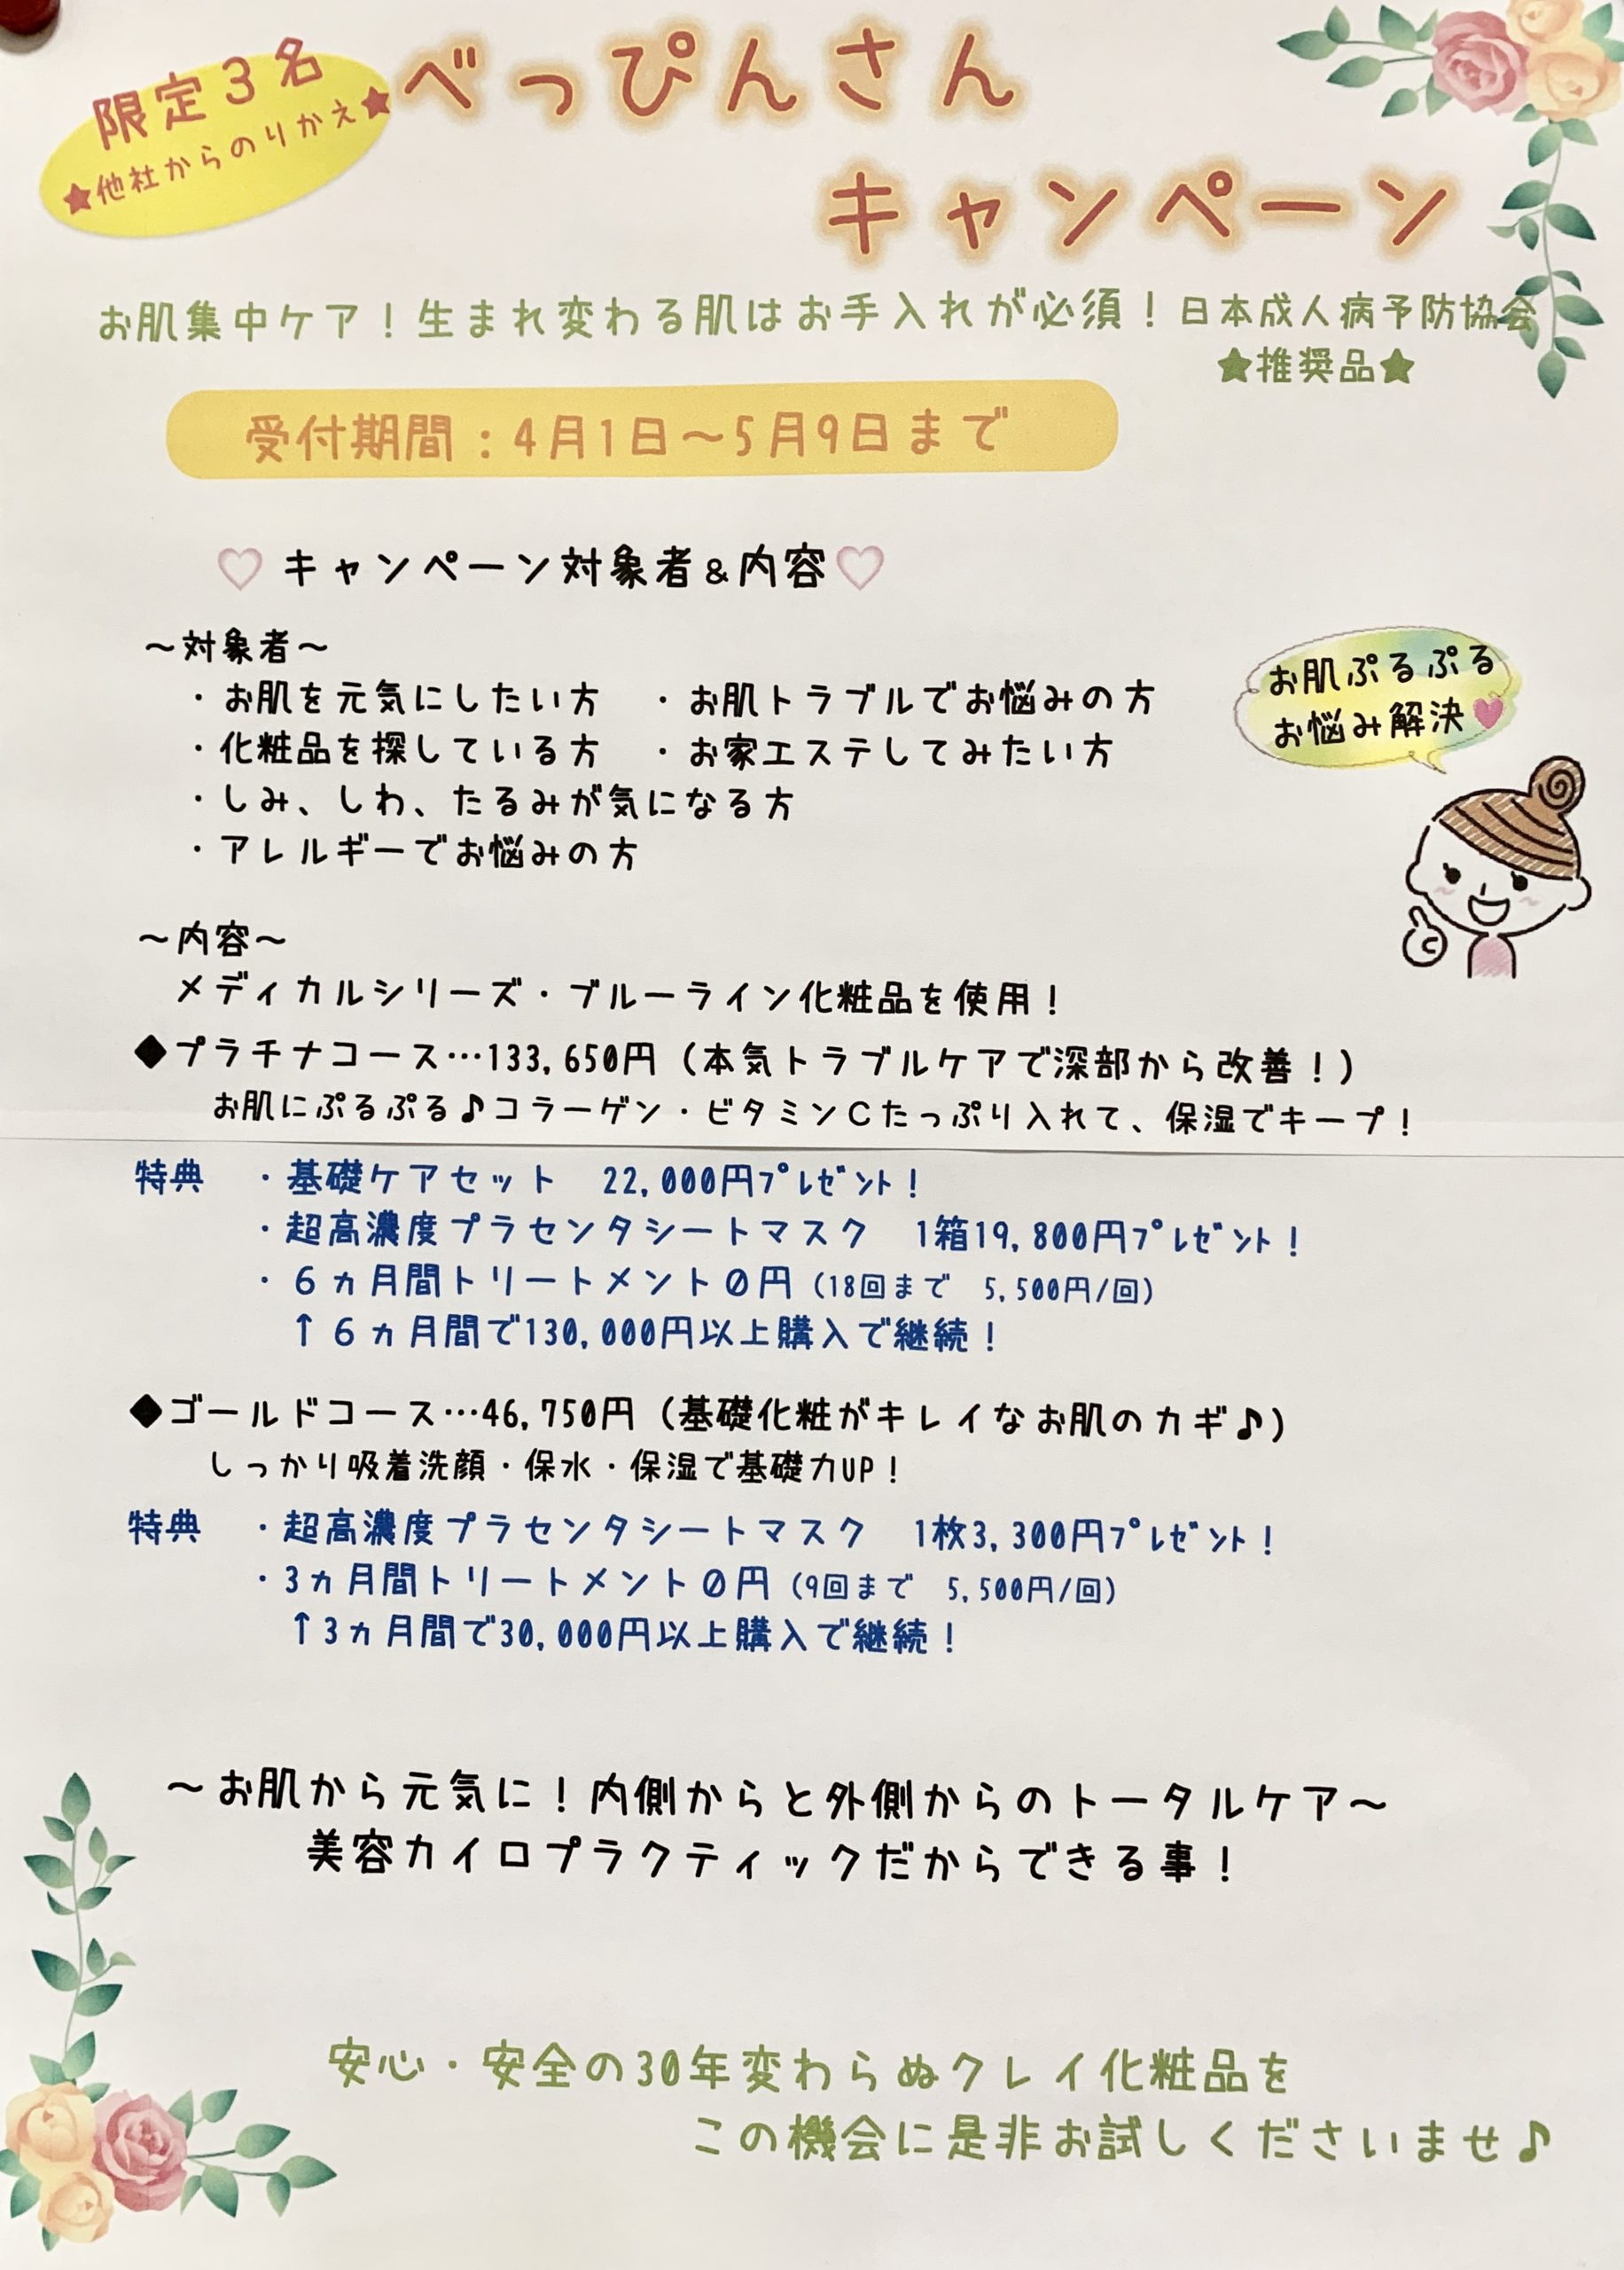 限定３名
★他社からのりかえ★
べっぴんさん
キャンペーン
お肌集中ケア！生まれ変わる肌はお手入れが必須！日本成人病予防協会
★推奨品★
受付期間：4月1日～5月9日まで
♡ キャンペーン対象者＆内容♡
～対象者～
・お肌を元気にしたい方　・お肌トラブルでお悩みの方
・化粧品を探している方　・お家エステしてみたい方
・しみ、しわ、たるみが気になる方
・アレルギーでお悩みの方
お肌ぷるぷる
お悩み解決♥
～内容～
メディカルシリーズ・ブルーライン化粧品を使用！
◆プラチナコース…133,650円（本気トラブルケアで深部から改善！）
お肌にぷるぷる♪コラーゲン・ビタミンCたっぷり入れて、保湿でキープ！
特典　・基礎ケアセット　22,000円ﾌﾟﾚｾﾞﾝﾄ！
・超高濃度プラセンタシートマスク　1箱19,800円ﾌﾟﾚｾﾞﾝﾄ！
・６ヵ月間トリートメント０円（18回まで　5,500円/回）
↑６ヵ月間で130,000円以上購入で継続！
◆ゴールドコース…46,750円（基礎化粧がキレイなお肌のカギ♪）
しっかり吸着洗顔・保水・保湿で基礎力UP！
特典　・超高濃度プラセンタシートマスク　1枚3,300円ﾌﾟﾚｾﾞﾝﾄ！
・3ヵ月間トリートメント０円（9回まで　5,500円/回）
↑3ヵ月間で30,000円以上購入で継続！
～お肌から元気に！内側からと外側からのトータルケア～
美容カイロプラクティックだからできる事！
安心・安全の30年変わらぬクレイ化粧品を
この機会に是非お試しくださいませ♪